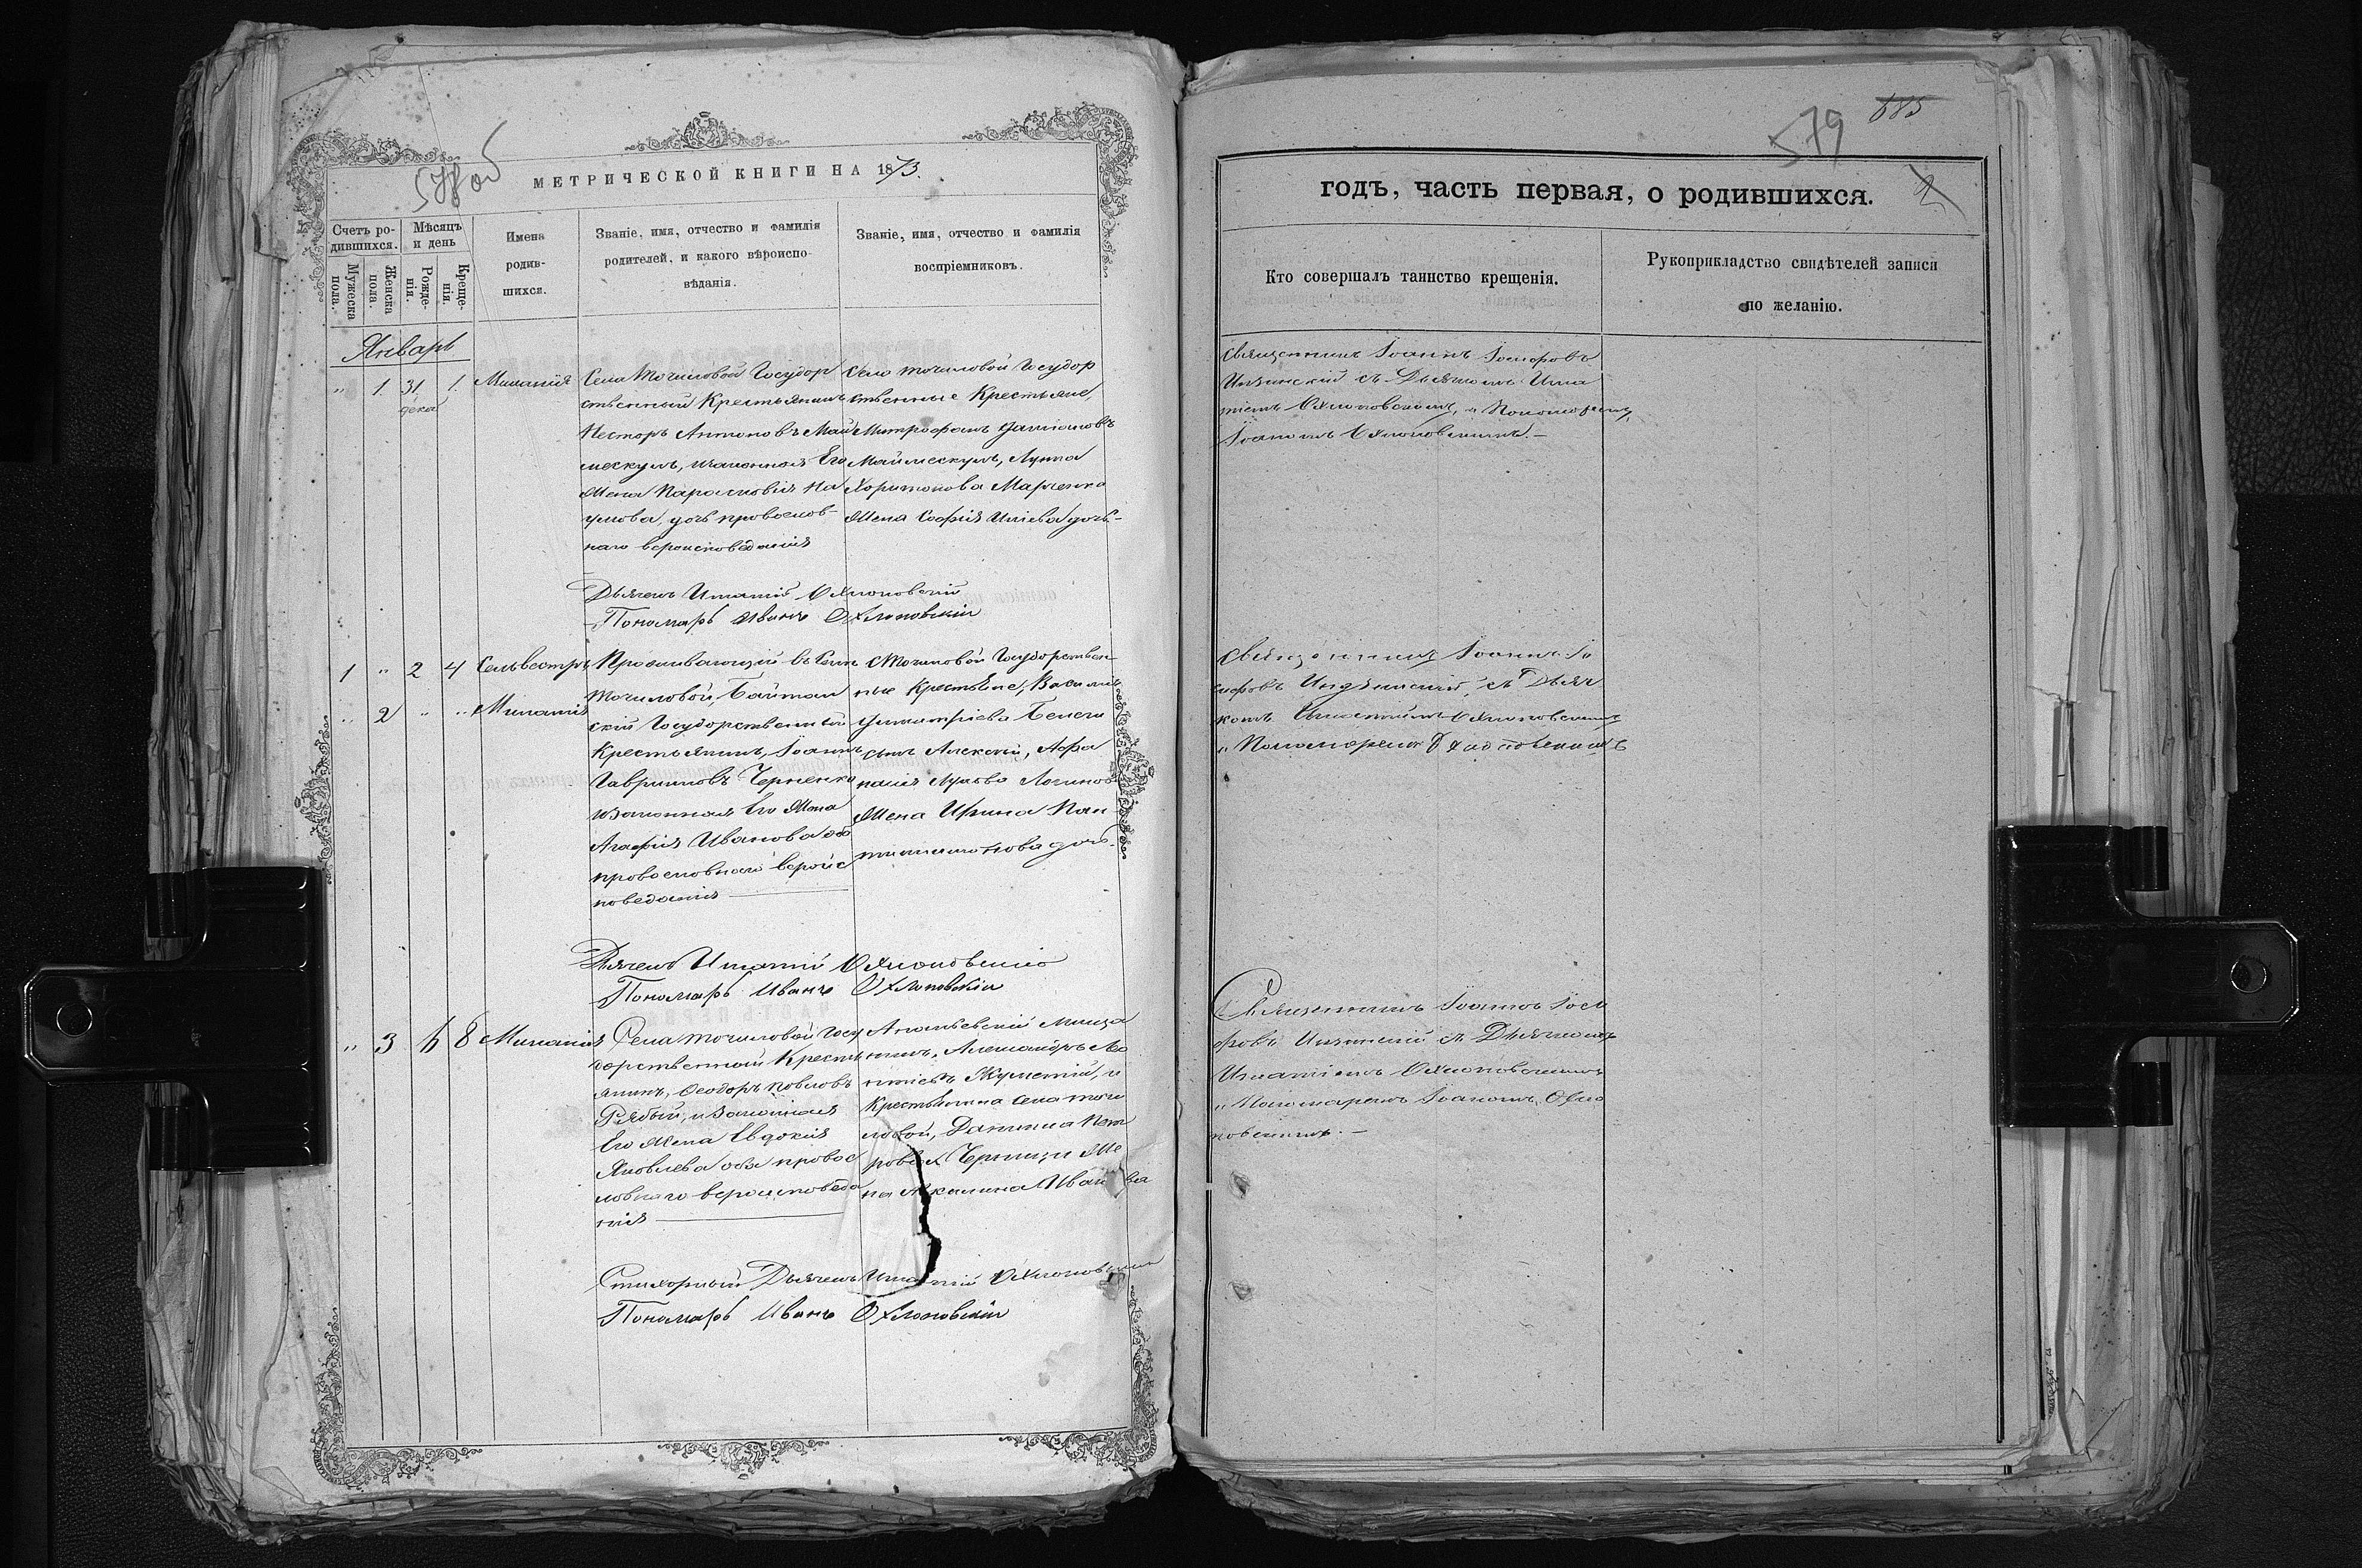 578 об
МЕТРИЧЕСКОЙ КНИГИ НА 1873.
Счетъ родившихся.
Мужеска пола.
Женска пола.
Мѣсяцъ и день
Рожденія.
Крещенія.
Имена
родив-
шихся.
Званіе, имя, отчество и фамилія
родителей, и какого вѣроиспо-
вѣданія.
Званіе, имя, отчество и фамилія
воспріемниковъ.
Январь
" 1 31 1. Миланія
дека
Села Точиловой Государ
ственный Крестьянинъ
Несторъ Антоновъ Май
мескулъ, изаконная Его
Жена Парасковія На
умова дочь православ-
наго вероисповеданія
Села точиловой Государ
ственные Крестьяне,
Митрофанъ Даниловъ
Маймескулъ, Лукіа
Харитонова Марченко
Жена Софія Иліева дочь-
Дьячекъ Игнатій Охлоповскій
Пономарь Иванъ Охлоповскій
1 " 2 4 Сельвестръ
" 2 " " Миланія
Проживающій въ Селѣ
Точиловой, Байтал
скій Государственный
Крестьянинъ, Іоаннъ
Гавриловъ Черненко
изаконная Его Жена
Агафія Иванова оба
православнаго вероис
поведанія
С Точиловой Государствен-
ные Крестьяне, Василія
Димитріева
сынъ Алексей, Афа
насія Лукова
Жена Ирина Пан
тилимонова дочь.
Дьячекъ Игнатій Охлоповскій
Пономарь Иванъ Охлоповскій
" 3 6 8 Миланія
Села Точиловой Госу
дарственный Кресть
янинъ, Феодоръ Павловъ
Рябый, изаконная
Его Жена Евдокія
Яковлева оба правос
лавнаго вероисповеда
нія
Ананьевскій Мища
нинъ, Александръ Ле
онтіевъ
Крестьянина Села точи
ловой, Даниила Пет
рова
на Акилина Иванова
Стихарный Дьячекъ Игнатій Охлоповскій
Пономарь Иванъ Охлоповскій
579
685
2
годъ, часть первая, о родившихся.
Кто совершалъ таинство крещенія.
Рукоприкладство свидѣтелей записи
по желанію.
Священникъ Іоаннъ Іосифовъ
Инзинскій съ Дьячкомъ Игна
тіемъ Охлоповскимъ, и Пономаремъ,
Іоанномъ Охлоповскимъ.-
Священникъ Іоаннъ Іо
сифовъ Индзинскій, съ Дьяч
комъ Игнатіемъ Охлоповскимъ
и Пономаремъ Охлоповскимъ
Священникъ Іоаннъ Іоси
фовъ Инзинскій съ Дьячкомъ
Игнатіемъ Охлоповскимъ
и Пономаремъ Іоанномъ Охло
повскимъ.-